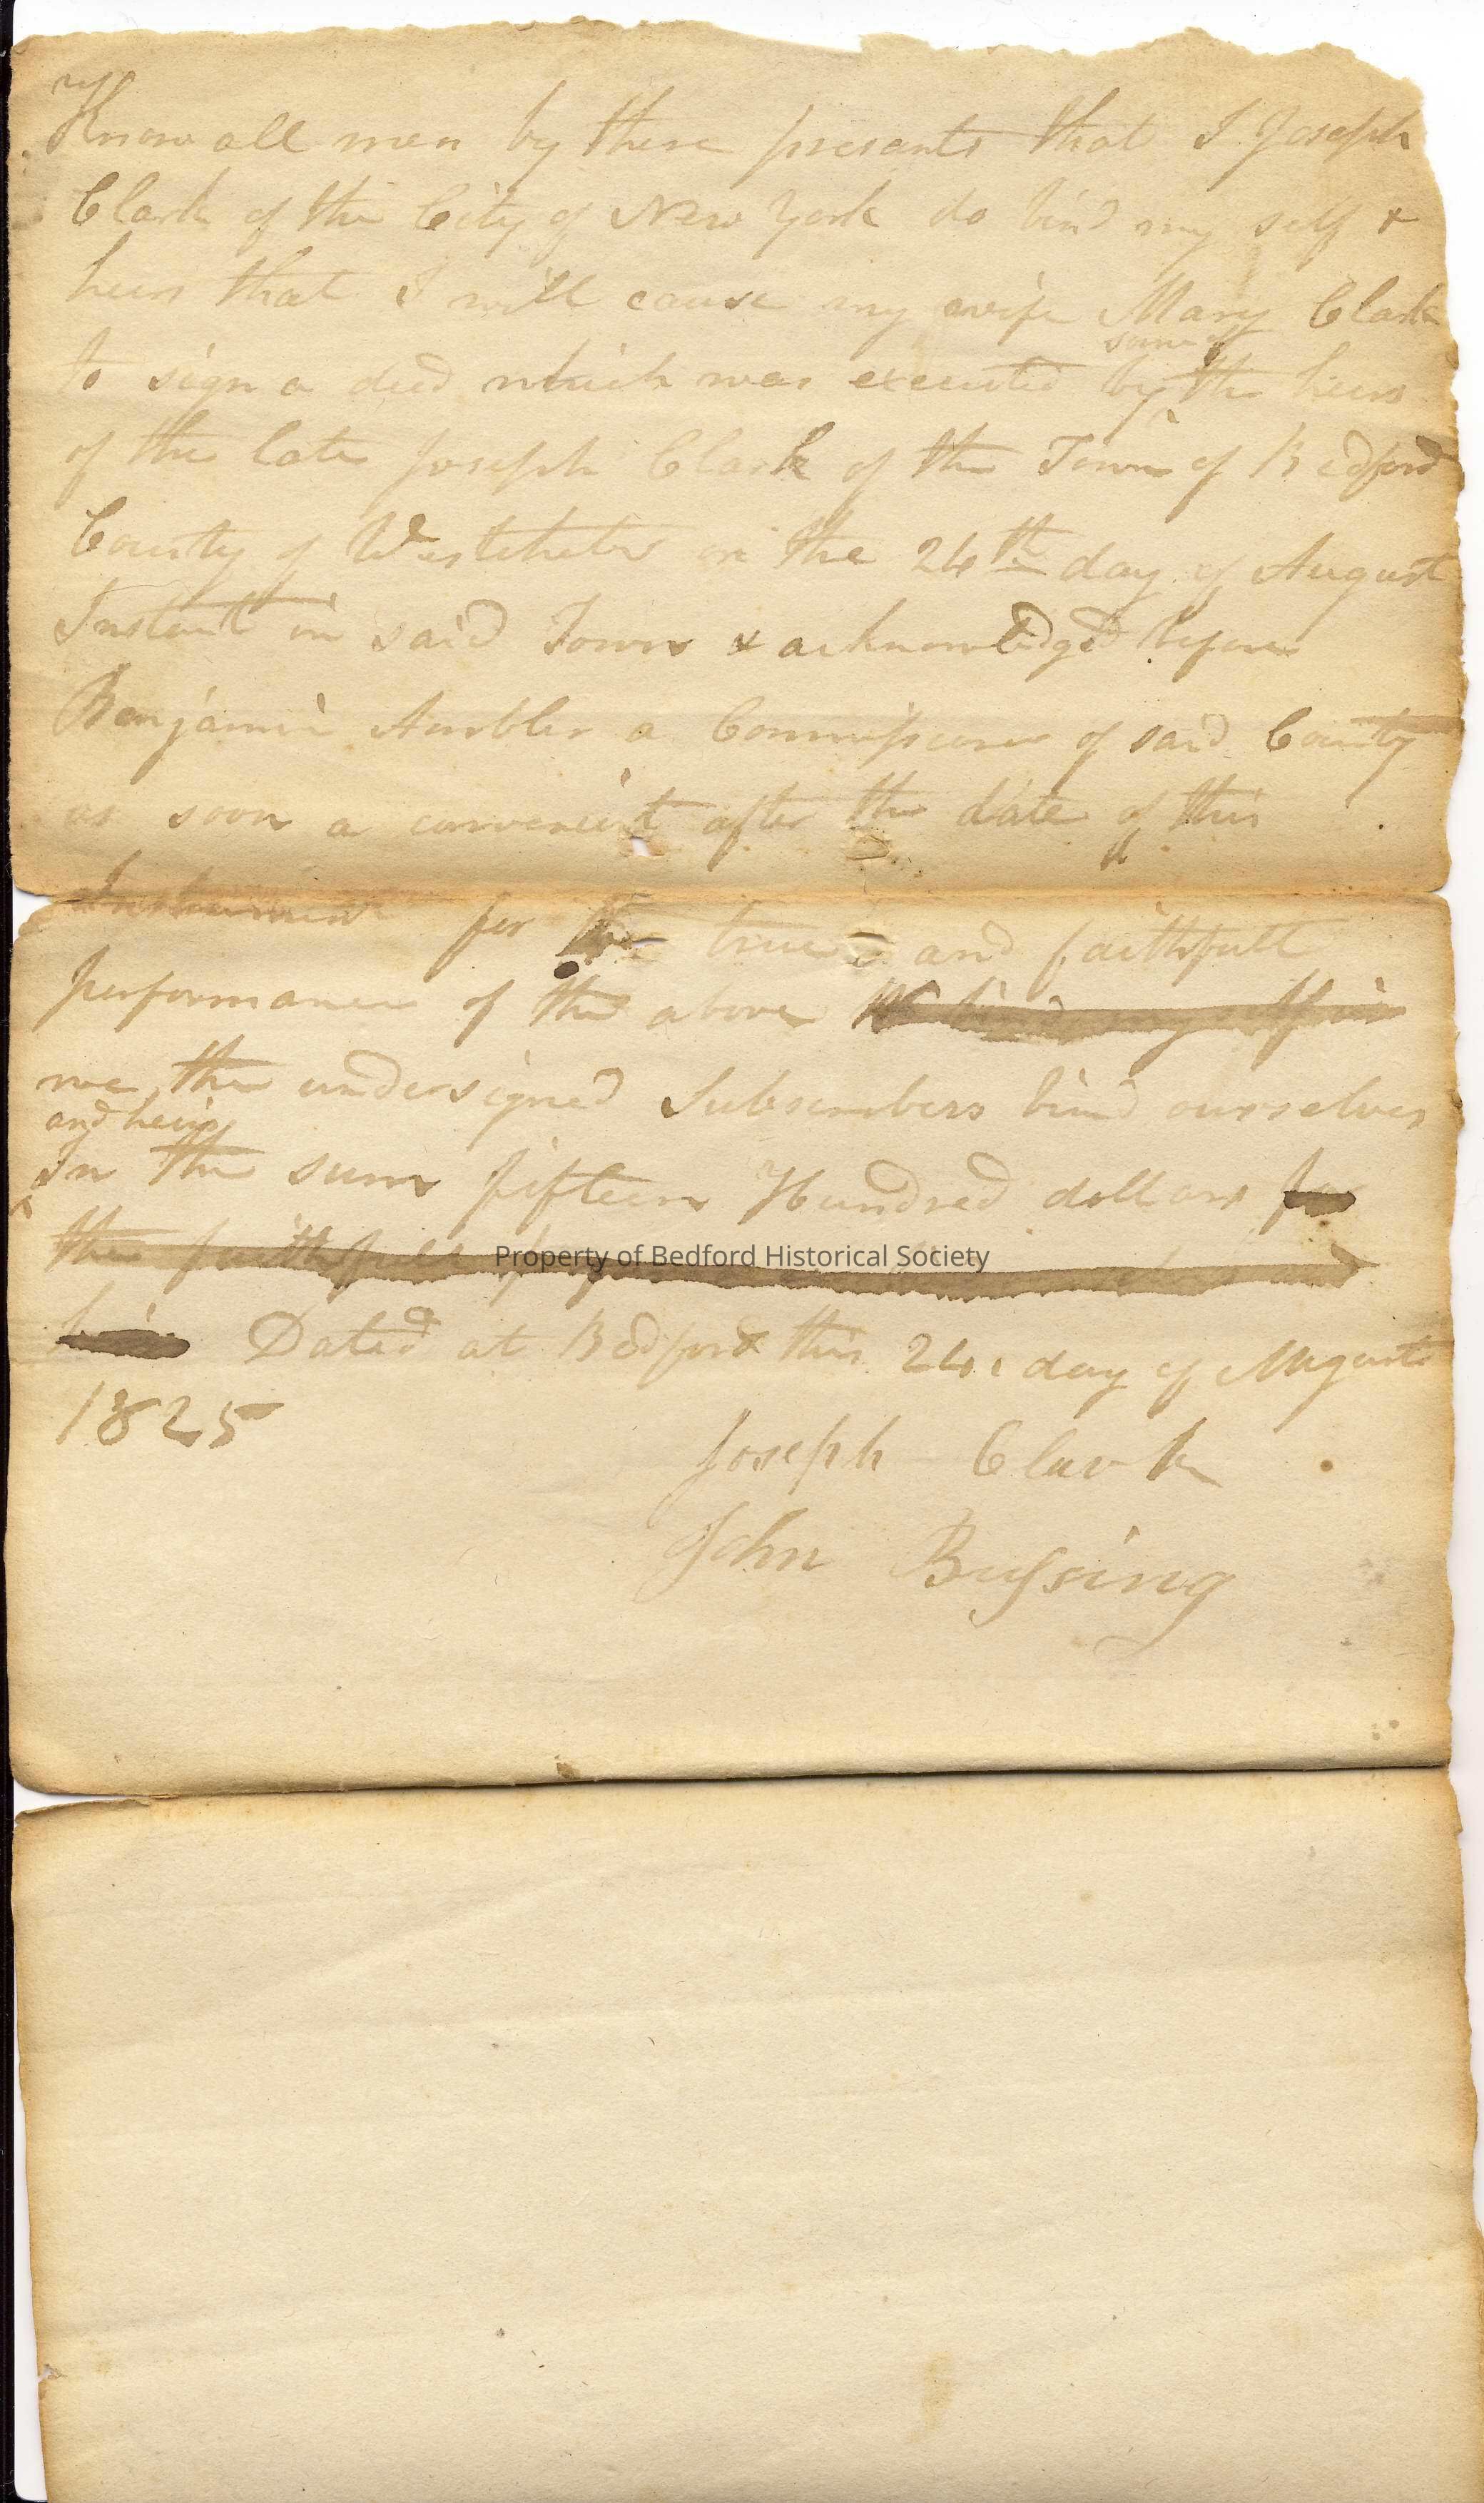 Know all men by these presents that I Joseph
Clark of the City of New York do bind my self &
heirs that I will cause my wife Mary Clark
some of
to sign a deed which was executed by the heirs
of the late Joseph Clark of the Town of Bedford
County of Westchester on the 24th day of August
Instant in said Town & acknowledged before
Benjamin Ambler a Commissioner of said County
as soon a convenient after the date of this
Instrument for the true and faithfull
performance of the above bind my self in
we the undersigned Subscribers bind ourselves
and heirs
In the sum fifteen Hundred dollars for
the faithfull and
Property of Bedford Historical Society
heirs Dated at Bedford this 24 day of August
1825
Joseph Clark
John Bussing